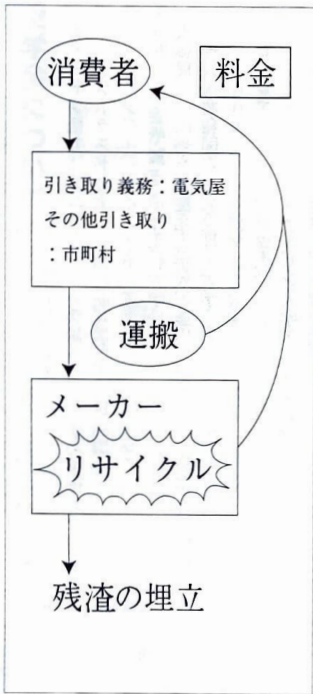 消費者
料金
引き取り義務：電気屋
その他引き取り
：市町村
運搬
メーカー
リサイクル
残渣の埋立